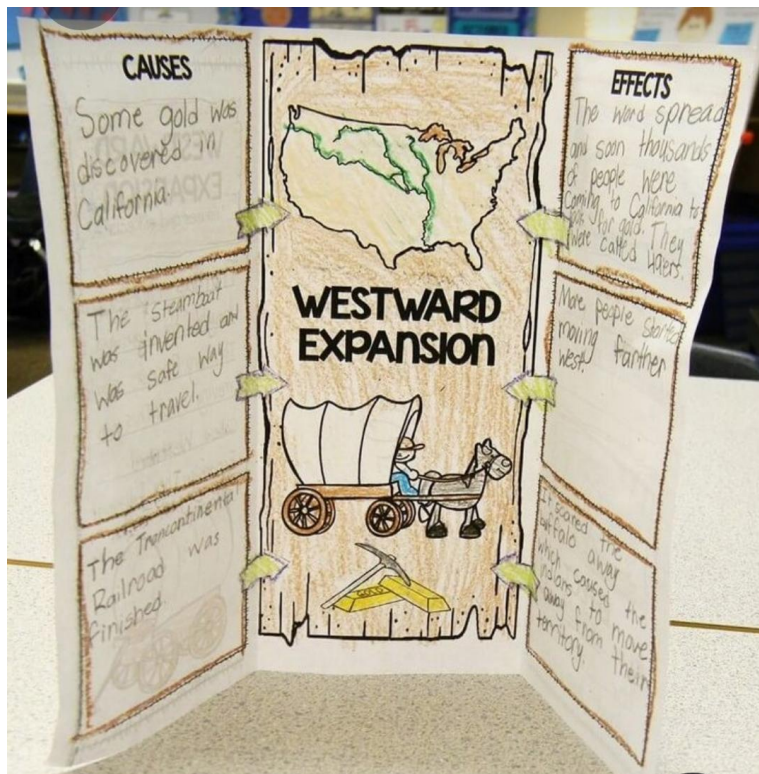 CAUSES
Some gold was
discovered in
California.
The steamboat
was invented and
was safe way
to travel.
The Trancontinental
Railroad was
finished.
WESTWARD
EXPANSION
GOLD
EFFECTS
The word spread
and soon thousands
of people were
coming to California to
look for gold. They
were called 49ers.
More people started
moving farther
west.
It scared the
buffalo away
which caused the
indians to move
away from their
territory.